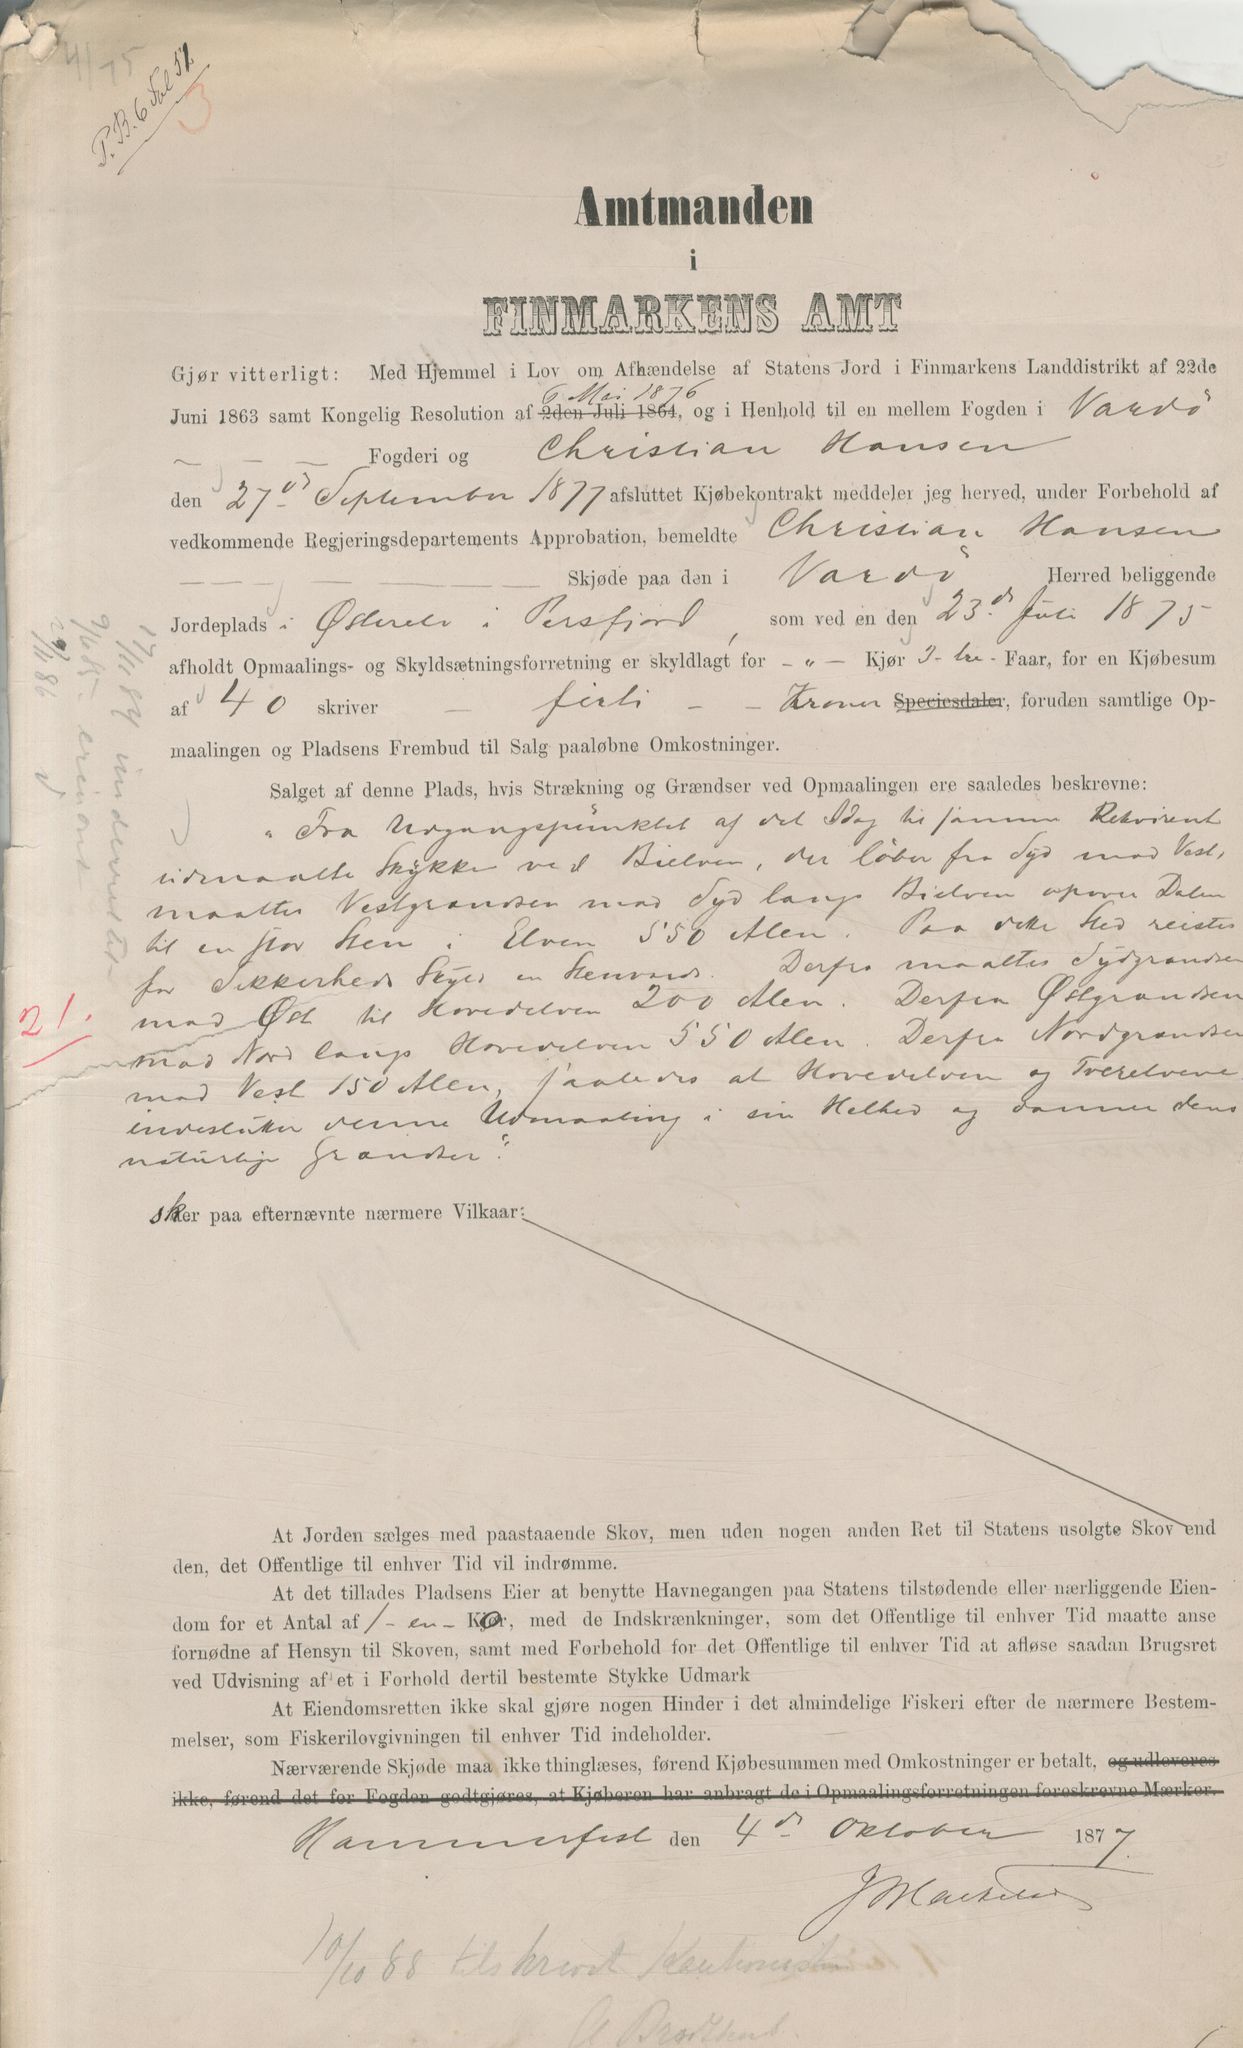 4/75
P. B. 6 Fol 51.
3
Amtmanden
i
FINMARKENS AMT
Gjør vitterligt: Med Hjemmel i Lov om Afhændelse af Statens Jord i Finmarkens Landdistrikt af 22de
6 Mai 1876
Juni 1863 samt Kongelig Resolution af 2den Juli 1864, og i Henhold til en mellem Fogden i Vardö
Fogderi og Christian Hansen
den 27de September 1877 afsluttet Kjøbekontrakt meddeler jeg herved, under Forbehold af
vedkommende Regjeringsdepartements Approbation, bemeldte Christian Hansen
Skjøde paa den i Vardö Herred beliggende
Jordeplads i Østerelv i Persfjord, som ved en den 23de Juli 1875
afholdt Opmaalings- og Skyldsætningsforretning er skyldlagt for - " - Kjør 3 - tre - Faar, for en Kjøbesum
af 40 skriver - firti - - Kroner Speciesdaler, foruden samtlige Op-
maalingen og Pladsens Frembud til Salg paaløbne Omkostninger.
Salget af denne Plads, hvis Strækning og Grændser ved Opmaalingen ere saaledes beskrevne:
"Fra Udgangspunktet af det Idag til samme Rekvirent
udmaalte Stykke ved Bielven, der løber fra Syd mod Vest,
maaltes Vestgrandsen mod Syd langs Bielven opover Dalen
til en stor Sten i Elven 550 Alen. Paa dette Sted reistes
for Sikkerheds Skyld en Stenvarde. Derfra maaltes Sydgrandsen
mod Øst til Hovedelven 200 Alen. Derfra Østgrandsen
21.
mod Nord langs Hovedelven 550 Alen. Derfra Nordgrandsen
mod Vest 150 Alen, saaledes at Hovedelven og Tverelvene
indeslutter denne Udmaaling i sin Helhed og danner dens
naturlige Grandser".
sker paa efternævnte nærmere Vilkaar:
At Jorden sælges med paastaaende Skov, men uden nogen anden Ret til Statens usolgte Skov end
den, det Offentlige til enhver Tid vil indrømme.
At det tillades Pladsens Eier at benytte Havnegangen paa Statens tilstødende eller nærliggende Eien-
dom for et Antal af 1 - en - Ko, med de Indskrænkninger, som det Offentlige til enhver Tid maatte anse
fornødne af Hensyn til Skoven, samt med Forbehold for det Offentlige til enhver Tid at afløse saadan Brugsret
ved Udvisning af et i Forhold dertil bestemte Stykke Udmark
At Eiendomsretten ikke skal gjøre nogen Hinder i det almindelige Fiskeri efter de nærmere Bestem-
melser, som Fiskerilovgivningen til enhver Tid indeholder.
Nærværende Skjøde maa ikke thinglæses, førend Kjøbesummen med Omkostninger er betalt, og udleveres
ikke, førend det for Fogden godtgjøres, at Kjøberen har anbragt de i Opmaalingsforretningen foreskrevne Mærker.
Hammerfest den 4de Oktober 1877.
10/10 88 tilskrevet